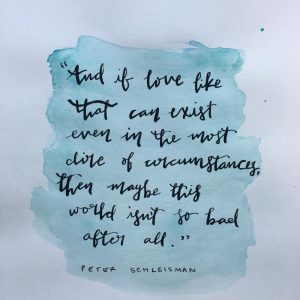 "And if love like
that can exist
even in the most
dire of circumstances,
then maybe this
world isn't so bad
after all."
PETER SCHLEISMAN